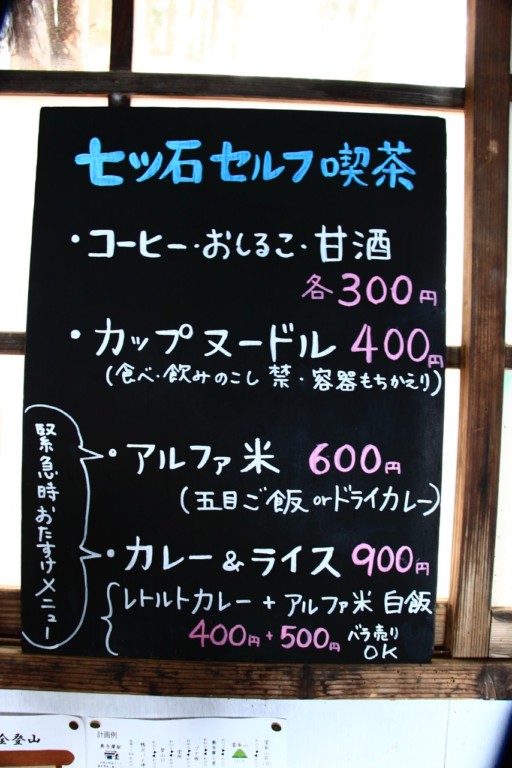 七ツ石セルフ喫茶
・コーヒー・おしるこ・甘酒
各300円
・カップヌードル 400円
(食べ・飲みのこし禁・容器もちかえり)
緊急時おたすけメニュー
・アルファ米 600円
(五目ご飯orドライカレー)
・カレー&ライス 900円
レトルトカレー+アルファ米白飯
400円+500円 バラ売りOK
全登山
計画例